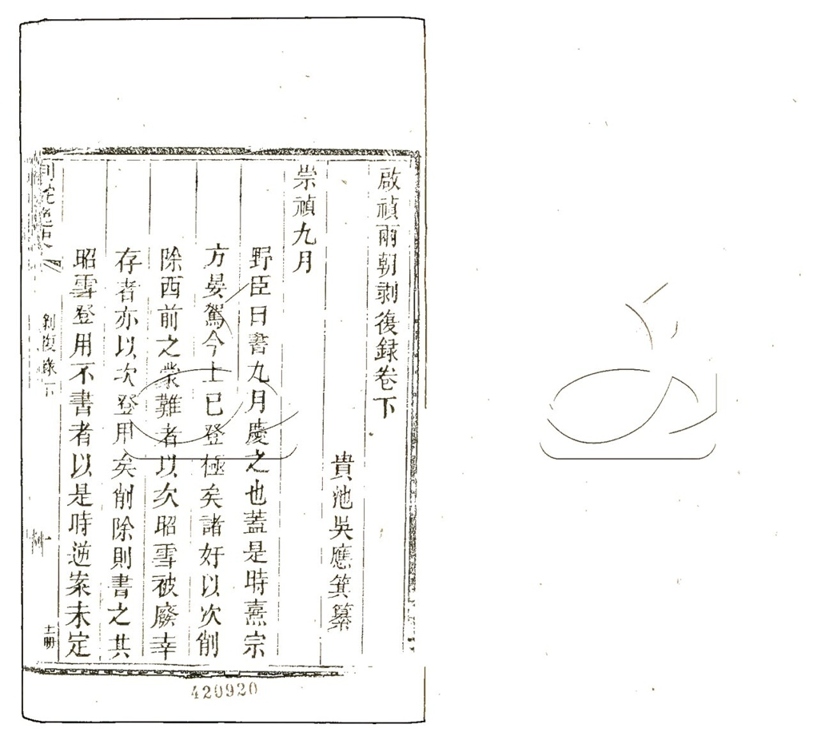 啟禎兩朝剥復録卷下
貴池吳應箕纂
崇禎九月
野臣曰書九月慶之也蓋是時熹宗
方晏駕今上已登極矣諸奸以次削
除西前之蒙難者以次昭雪被廢幸
存者亦以次登用矣削除則書之其
昭雪登用不書者以是時逆案未定
剥復錄下
十一
十一冊
420920